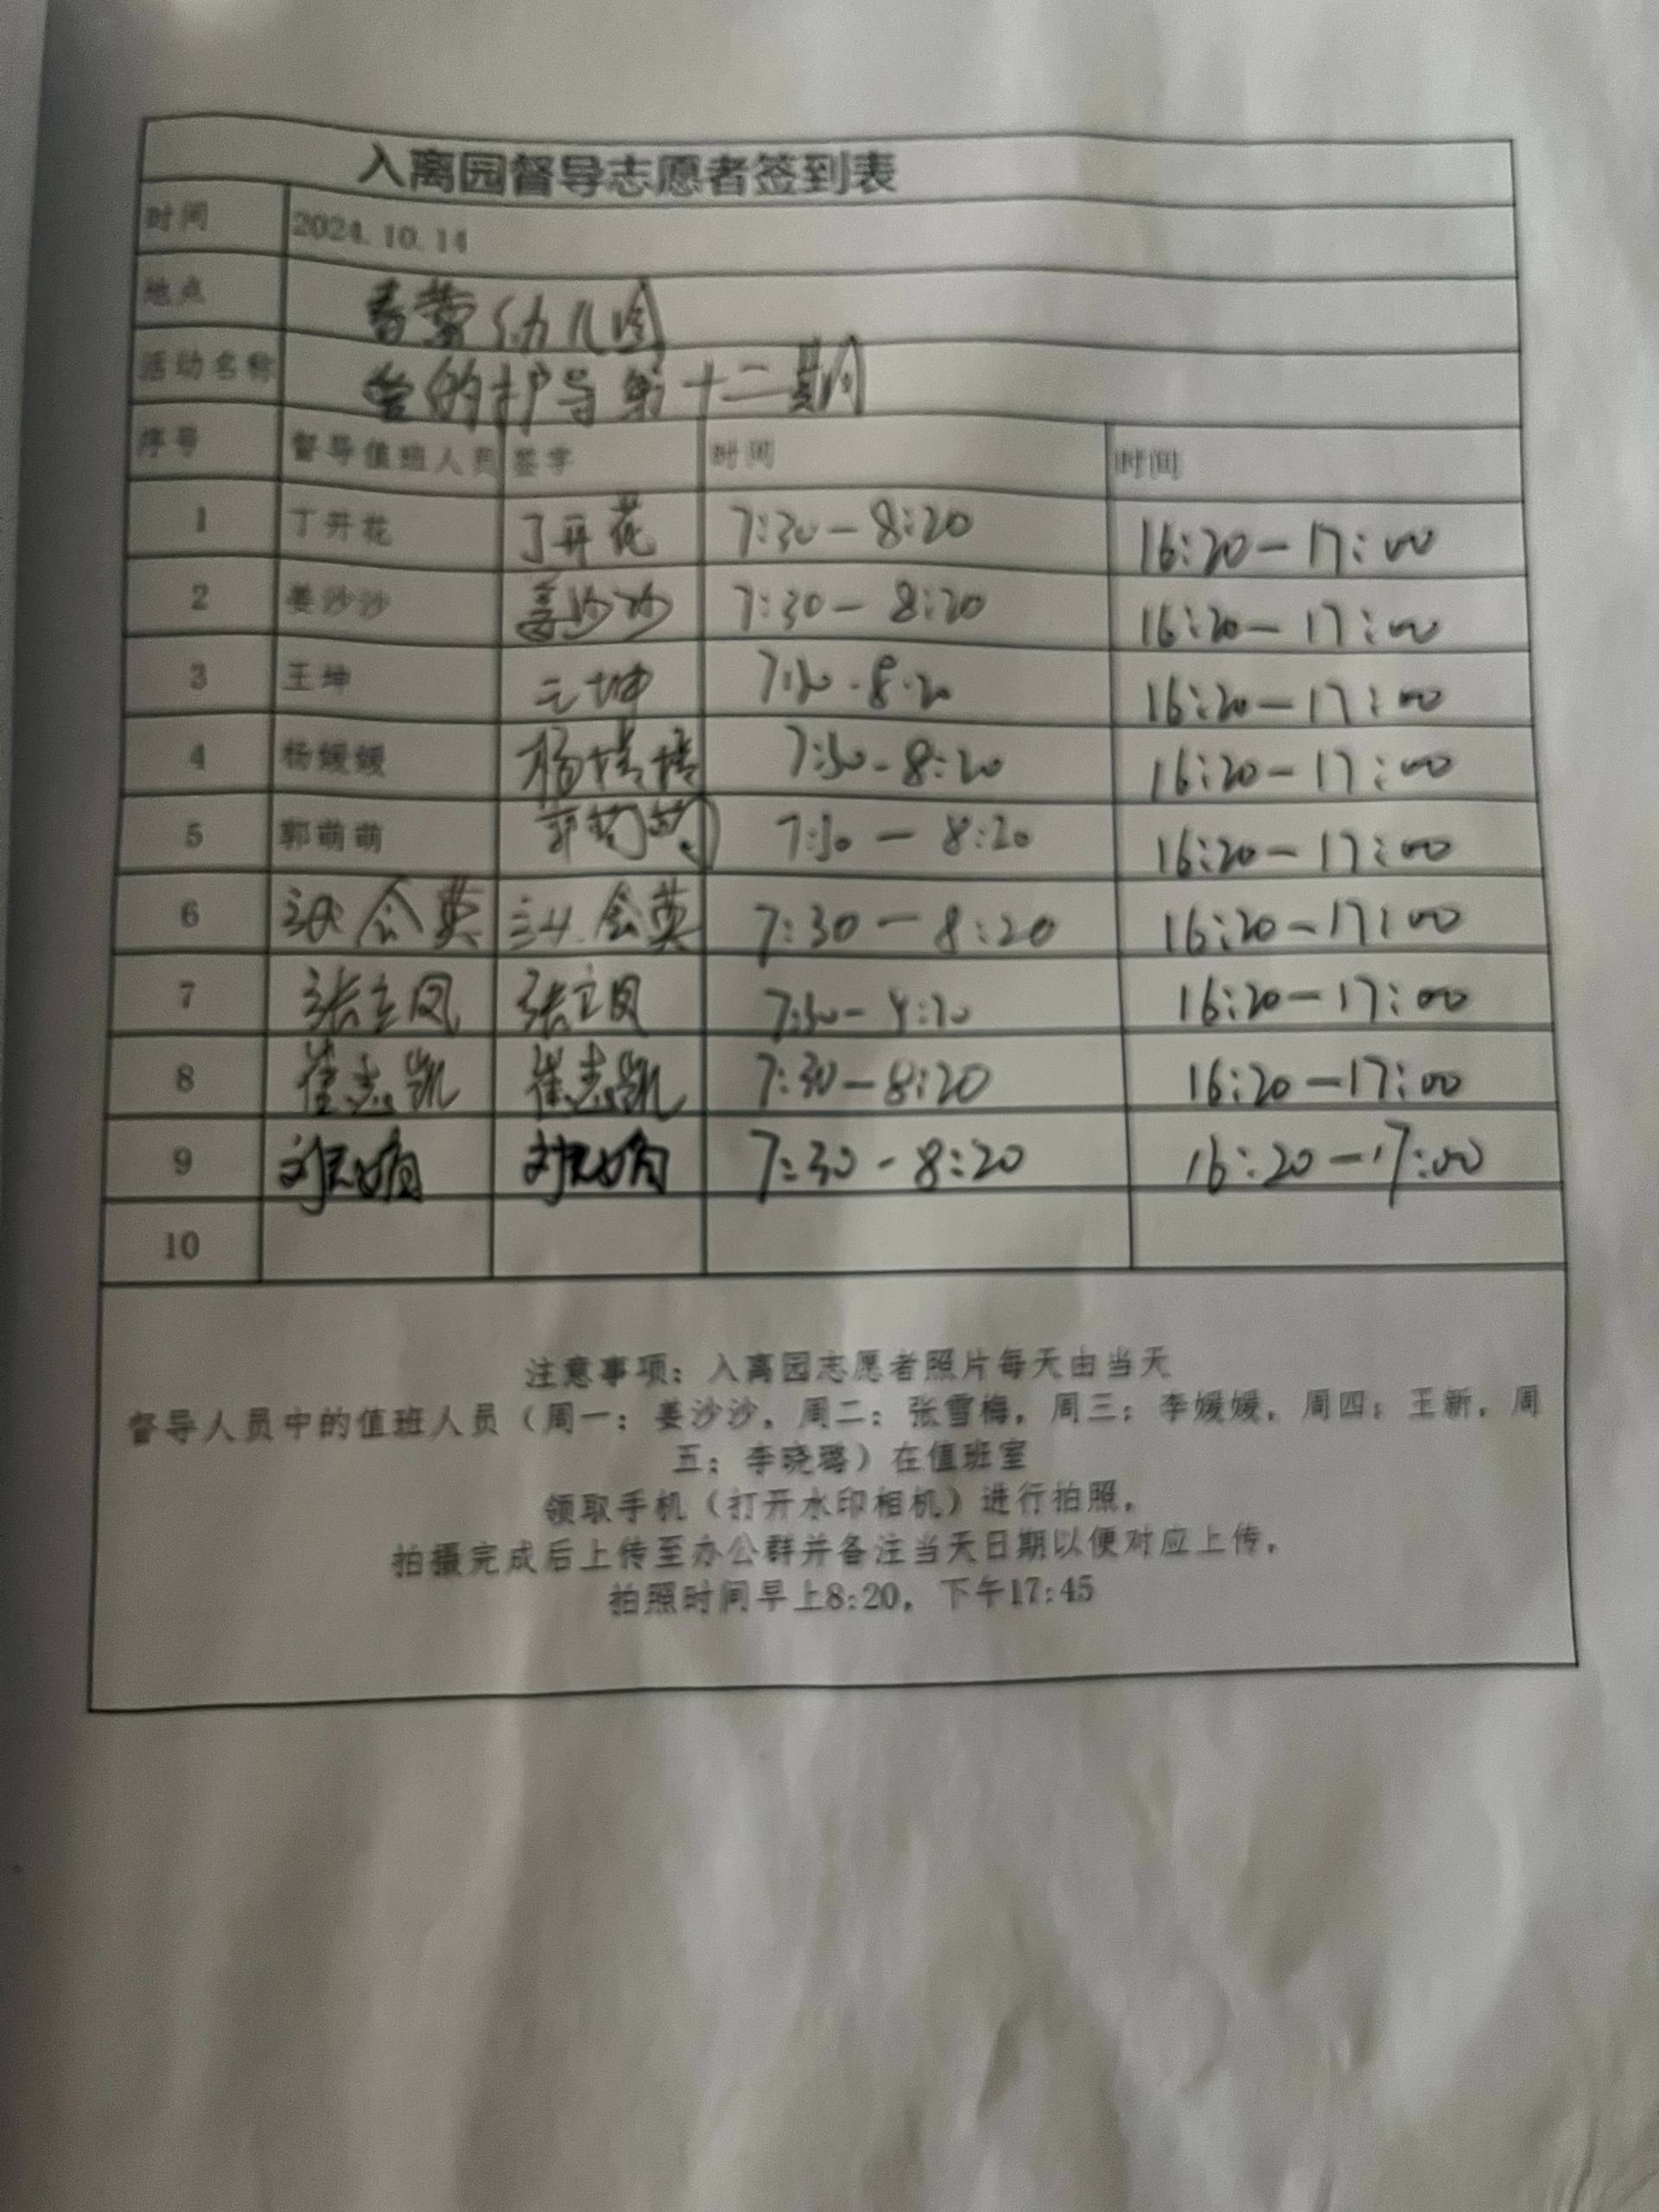 入离园督导志愿者签到表
时间 2024.10.14
地点 春蕾幼儿园
活动名称 护导第十二期
序号 督导值班人员 签字 时间 时间
1 丁开花 丁开花 7:30-8:20 16:20-17:00
2 姜沙沙 姜沙沙 7:30-8:20 16:20-17:00
3 王坤 王坤 7:30-8:20 16:20-17:00
4 杨媛媛 杨媛媛 7:30-8:20 16:20-17:00
5 郭萌萌 郭萌萌 7:30-8:20 16:20-17:00
6 会英 会英 7:30-8:20 16:20-17:00
7 张立凤 张立凤 7:30- 16:20-17:00
8 崔志凯 崔志凯 7:30-8:20 16:20-17:00
9 7:30-8:20 16:20-17:00
10
注意事项：入离园志愿者照片每天由当天
督导人员中的值班人员（周一：姜沙沙，周二：张雪梅，周三：李媛媛，周四：王新，周
五：李晓璐）在值班室
领取手机（打开水印相机）进行拍照，
拍摄完成后上传至办公群并备注当天日期以便对应上传，
拍照时间早上8:20，下午17:45